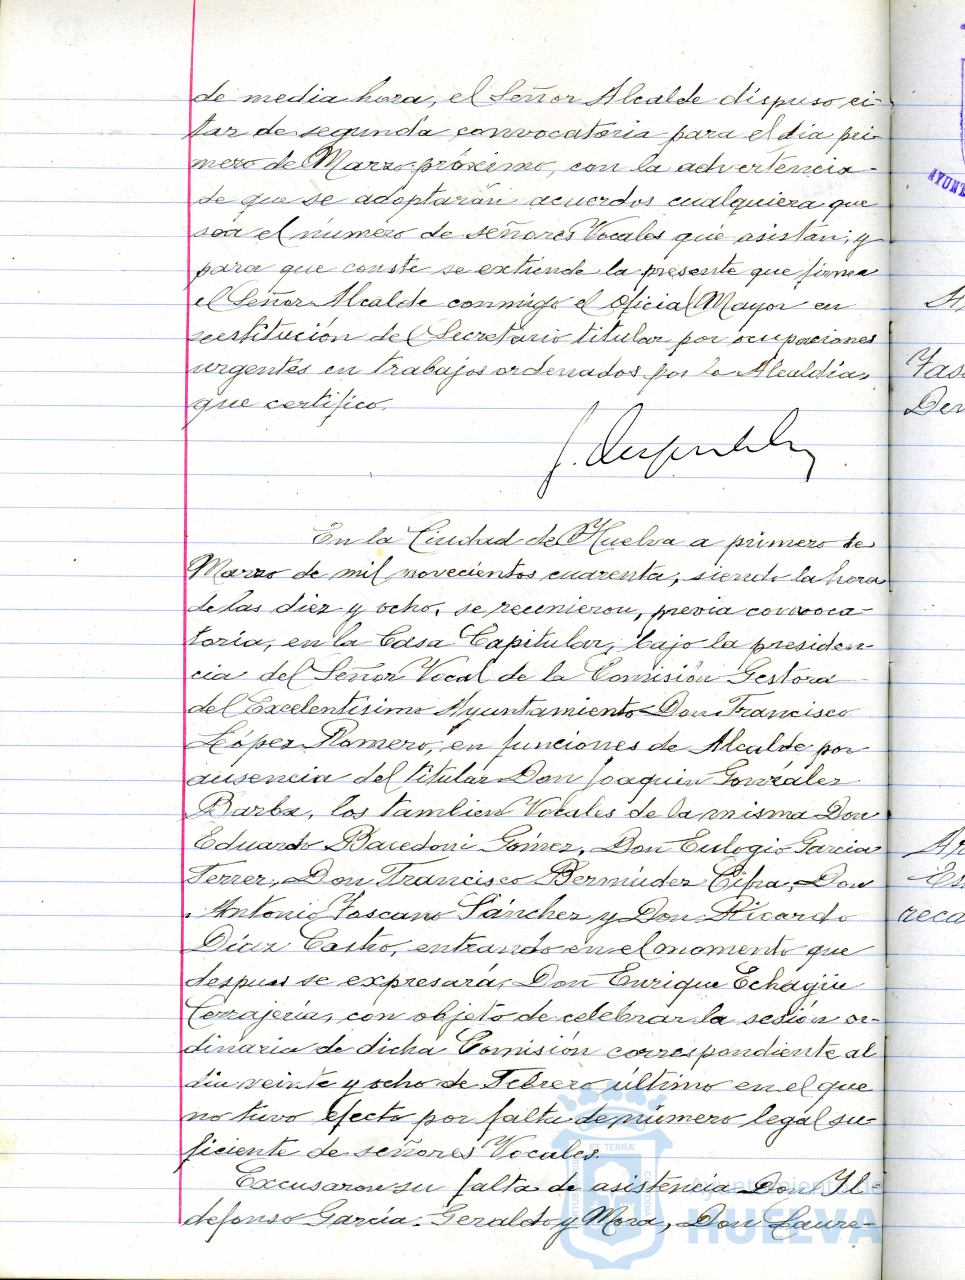 de media hora, el Señor Alcalde dispuso ci-
tar de segunda convocatoria para el dia pri-
mero de Marzo próximo, con la advertencia
de que se adoptarán acuerdos cualquiera que
sea el número de señores Vocales que asistan; y
para que conste se extiende la presente que firma
el Señor Alcalde conmigo el Oficial Mayor en
sustitución del Secretario titular por ocupaciones
urgentes en trabajos ordenados por la Alcaldía,
que certifico.
En la Ciudad de Huelva a primero de
Marzo de mil novecientos cuarenta, siendo la hora
de las diez y ocho, se reunieron, previa convoca-
toria, en la Casa Capitular, bajo la presiden-
cia del Señor Vocal de la Comisión Gestora
del Excelentísimo Ayuntamiento Don Francisco
López Romero, en funciones de Alcalde por
ausencia del titular Don Joaquin González
Barba, los tambien Vocales de la misma Don
Eduardo Bacedoni Gómez, Don Eulogio Garcia
Ferrer, Don Francisco Bermúdez Cifra, Don
Antonio Toscano Sánchez y Don Ricardo
Díaz Castro, entrando en el momento que
despues se expresará, Don Enrique Echagüe
Cerrajería, con objeto de celebrar la sesión or-
dinaria de dicha Comisión correspondiente al
dia veinte y ocho de Febrero último en el que
no tuvo efecto por falta de número legal su-
ficiente de señores Vocales.
Excusaron su falta de asistencia Don Il-
defonso García-Geraldo y Mora, Don Laure-
Ayuntamiento de
HUELVA